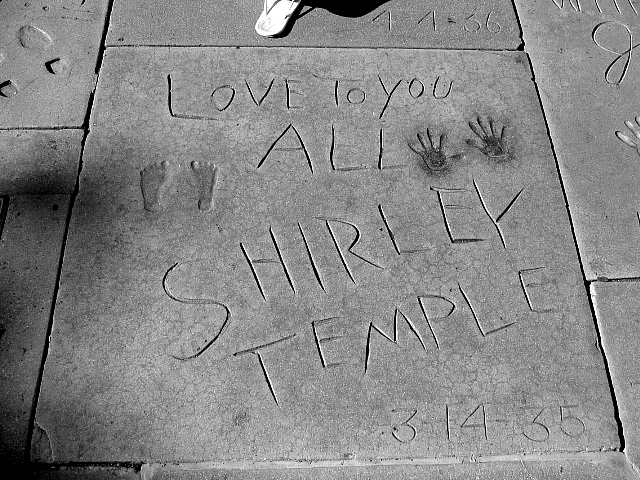 1-1-36
LOVE TO YOU
ALL
SHIRLEY
TEMPLE
3-14-35